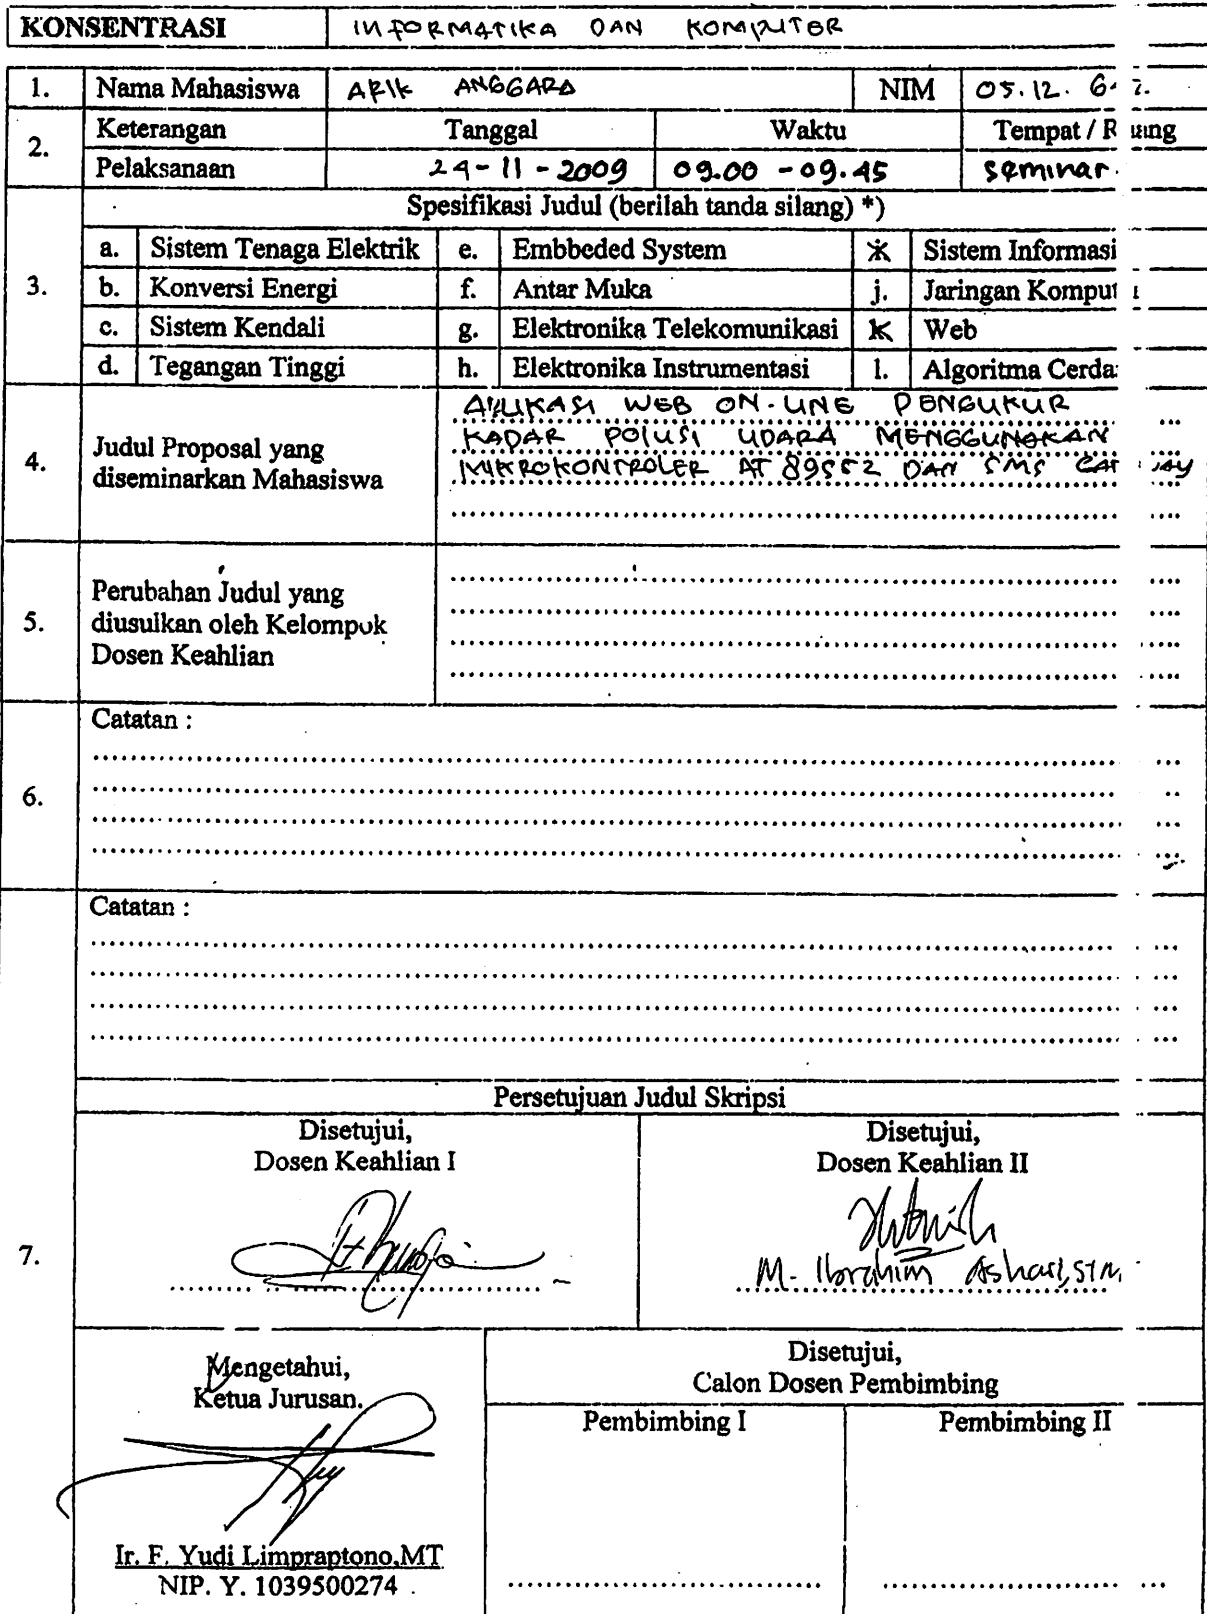 KONSENTRASI INFORMATIKA DAN KOMPUTER
1. Nama Mahasiswa ARIK ANGGARA NIM 05.12.
2. Keterangan Tanggal Waktu Tempat /
Pelaksanaan 24-11-2009 09.00 - 09.45 seminar.
Spesifikasi Judul (berilah tanda silang) *)
3.
a. Sistem Tenaga Elektrik e. Embbeded System Sistem Informasi
b. Konversi Energi f. Antar Muka j. Jaringan
c. Sistem Kendali g. Elektronika Telekomunikasi k Web
d. Tegangan Tinggi h. Elektronika Instrumentasi l. Algoritma
4. Judul Proposal yang
diseminarkan Mahasiswa
APLIKASI WEB ON-LINE PENGUKUR
KADAR POLUSI UDARA MENGGUNAKAN
MIKROKONTROLER AT 89S52 DAN SMS
5. Perubahan Judul yang
diusulkan oleh Kelompok
Dosen Keahlian
6. Catatan :
Catatan :
7.
Persetujuan Judul Skripsi
Disetujui,
Dosen Keahlian I
Disetujui,
Dosen Keahlian II
M. Ibrahim Ashari, ST
Mengetahui,
Ketua Jurusan.
Ir. F. Yudi Limpraptono,MT
NIP. Y. 1039500274
Disetujui,
Calon Dosen Pembimbing
Pembimbing I Pembimbing II